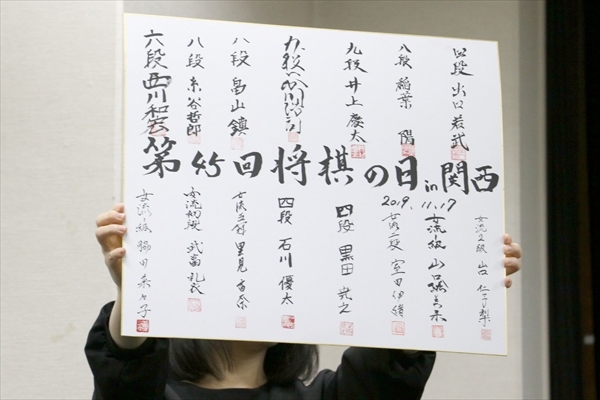 四段 出口若武
八段 稲葉 陽
九段 井上慶太
九段 谷川浩司
八段 畠山 鎮
八段 糸谷哲郎
六段 西川和宏
第45回将棋の日in関西
2019.11.17
女流2級 山口仁子梨
女流 山口絵美菜
女流二段 室田伊緒
四段 黒田尭之
四段 石川優太
里見香奈
女流初段 武富礼衣
女流 脇田菜々子